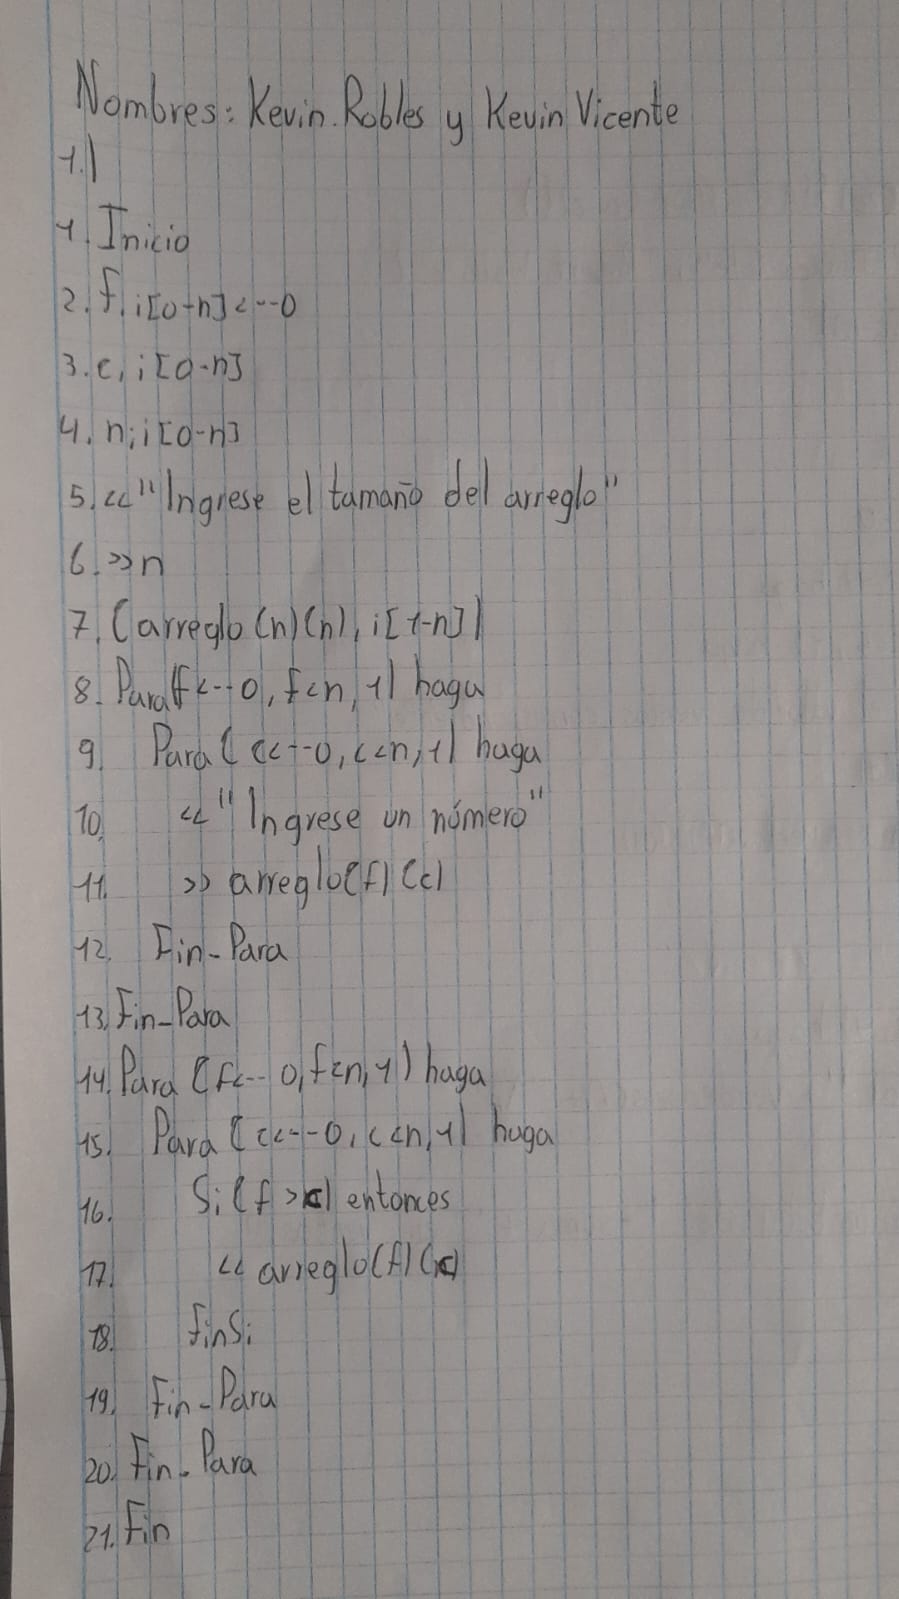 Nombres: Kevin Robles y Kevin Vicente
1.)
1. Inicio
2. f, i[0-n] <--0
3. c, i[0-n]
4. n, i[0-n]
5. << "Ingrese el tamaño del arreglo"
6. >> n
7. (arreglo(n)(n), i[1-n])
8. Para(f<--0, f<n, 1) haga
9. Para (c<--0, c<n, 1) haga
10. << "Ingrese un número"
11. >> arreglo(f)(c)
12. Fin-Para
13. Fin-Para
14. Para (f<-- 0, f<n, 1) haga
15. Para (c<--0, c<n, 1) haga
16. Si (f >c) entonces
17. << arreglo(f)(c)
18. FinSi
19. Fin-Para
20. Fin-Para
21. Fin